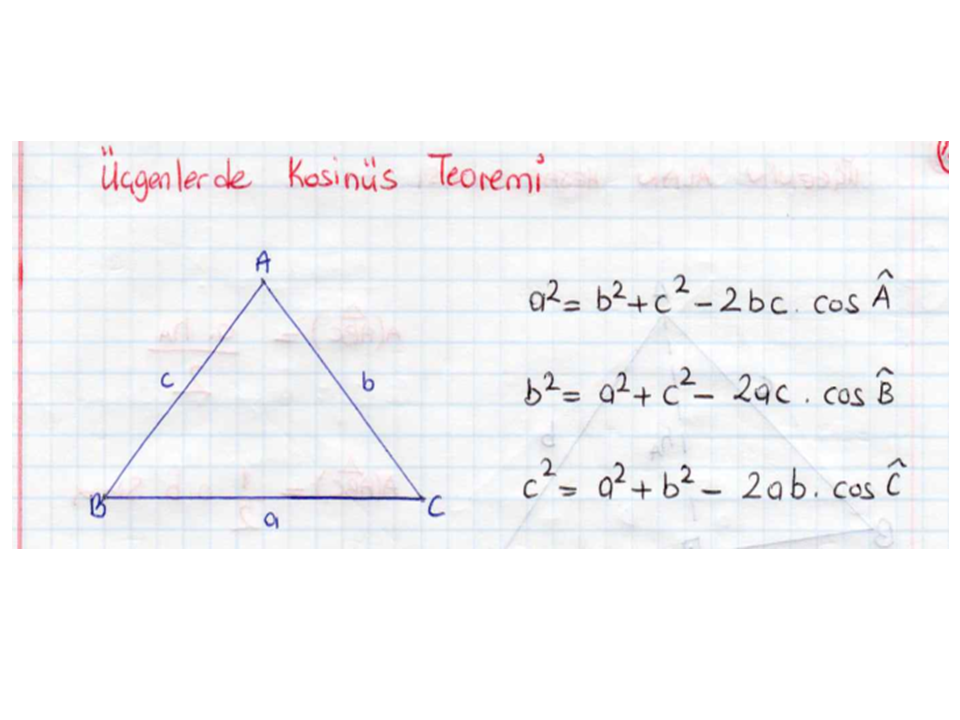 Üçgenlerde Kosinüs Teoremi
A
a² = b² + c² - 2bc. cos Â
c
b
b² = a² + c² - 2ac. cos B̂
c² = a² + b² - 2ab. cos Ĉ
B
a
C